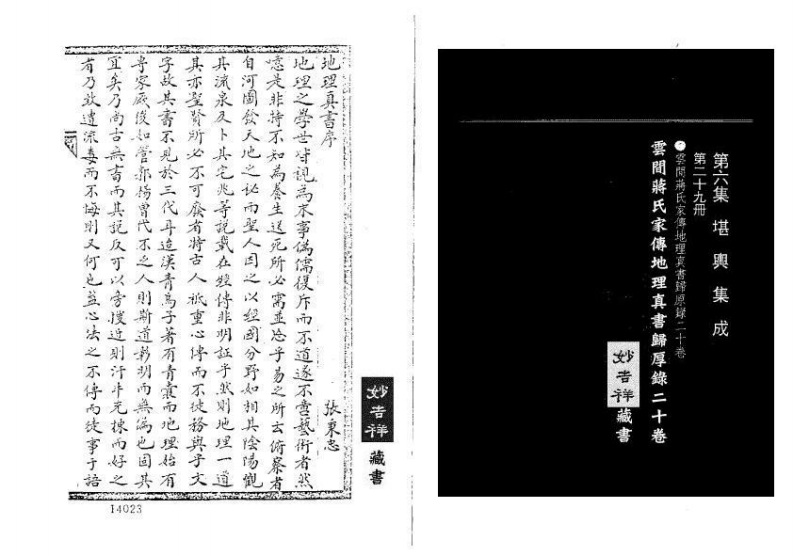 第六集 堪輿集成
第二十九冊
雲間蔣氏家傳地理真書歸原錄二十卷
雲間蔣氏家傳地理真書歸厚錄二十卷
妙吉祥
藏書
妙吉祥
藏書
地理真書序
張東忠
地理之學世皆視為末事偽儒復斥而不道遂不啻藝術者然
噫是非特不知為養生送死所必需並忽乎易之所云俯察者
自河圖發天地之秘而聖人因之以經國分野如相其陰陽觀
其流泉及卜其宅兆等說載在經傳非明証乎然則地理一道
其亦聖賢所必不可廢者特古人祇重心傳而不徒務與乎文
字故其書不見於三代耳迨漢青烏子著有青囊而地理始有
專家厥後如管郭楊曾代不乏人則斯道彰明而無漏也固其
宜矣乃尚古無書而其說反可以旁搜近則汗牛充棟而好之
者乃致遺流毒而不悔則又何也蓋心法之不傳而徒事于語
14023